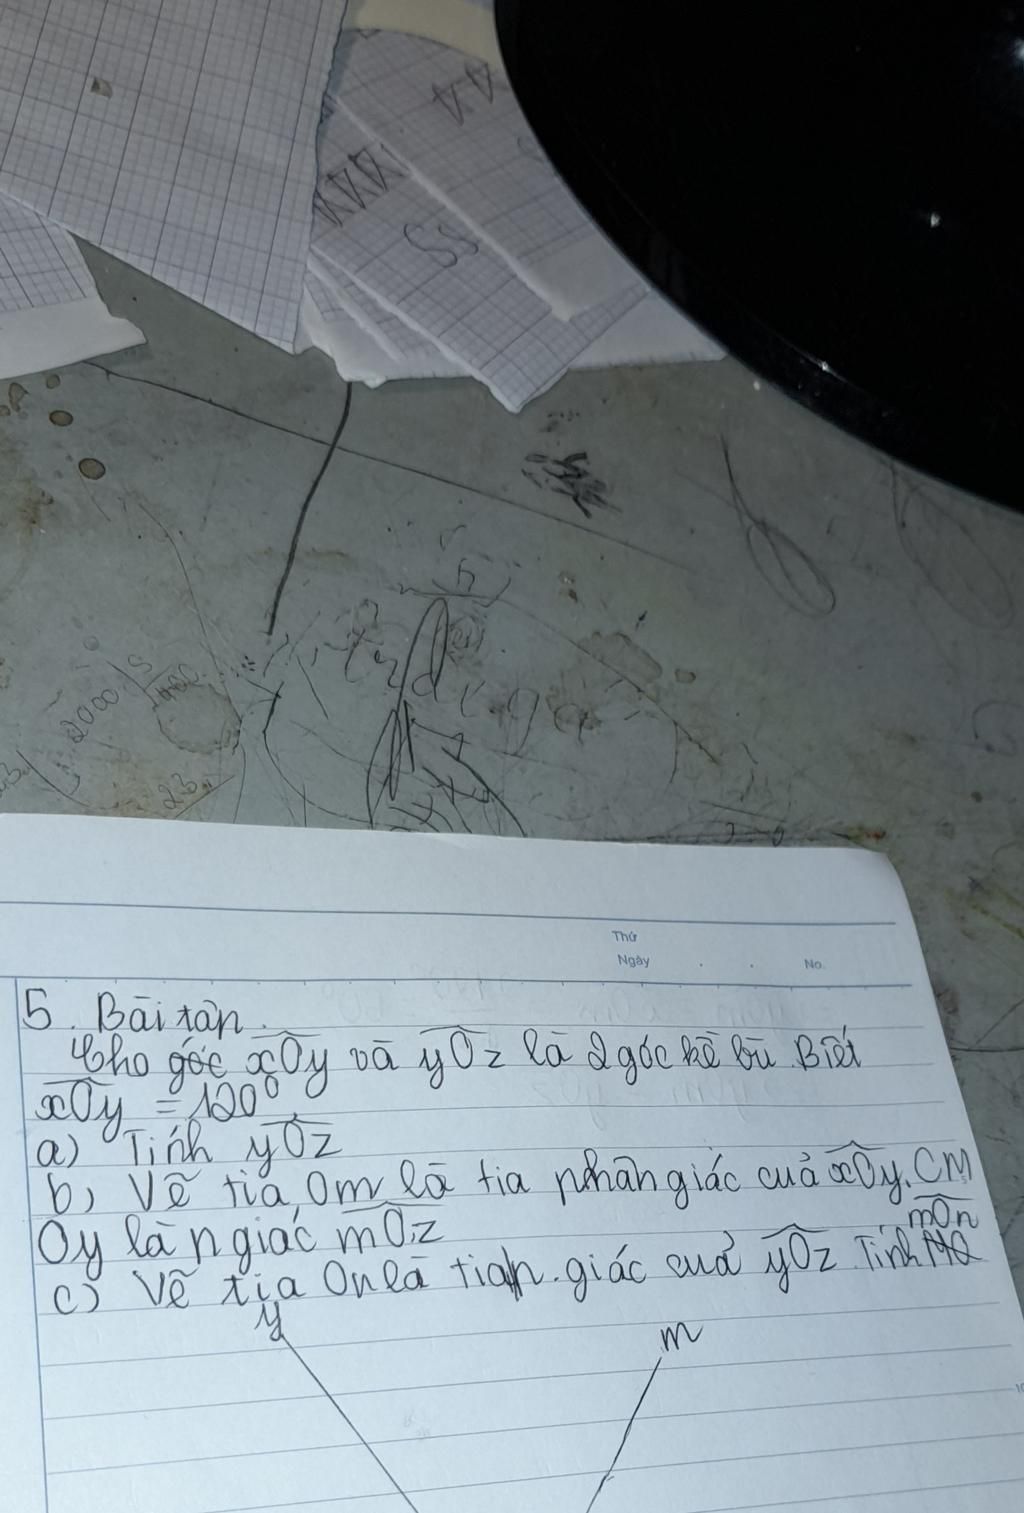 SS
2000
23
Thứ
Ngày . . No.
5. Bài tập
Cho góc xOy và yOz là 2 góc kề bù. Biết
xOy = 120°
a) Tính yOz
b) Vẽ tia Om là tia phân giác cuả xOy. CM
Oy là n giác mOz
mOn
c) Vẽ tia On là tia n. giác cuả yOz Tính
y
m